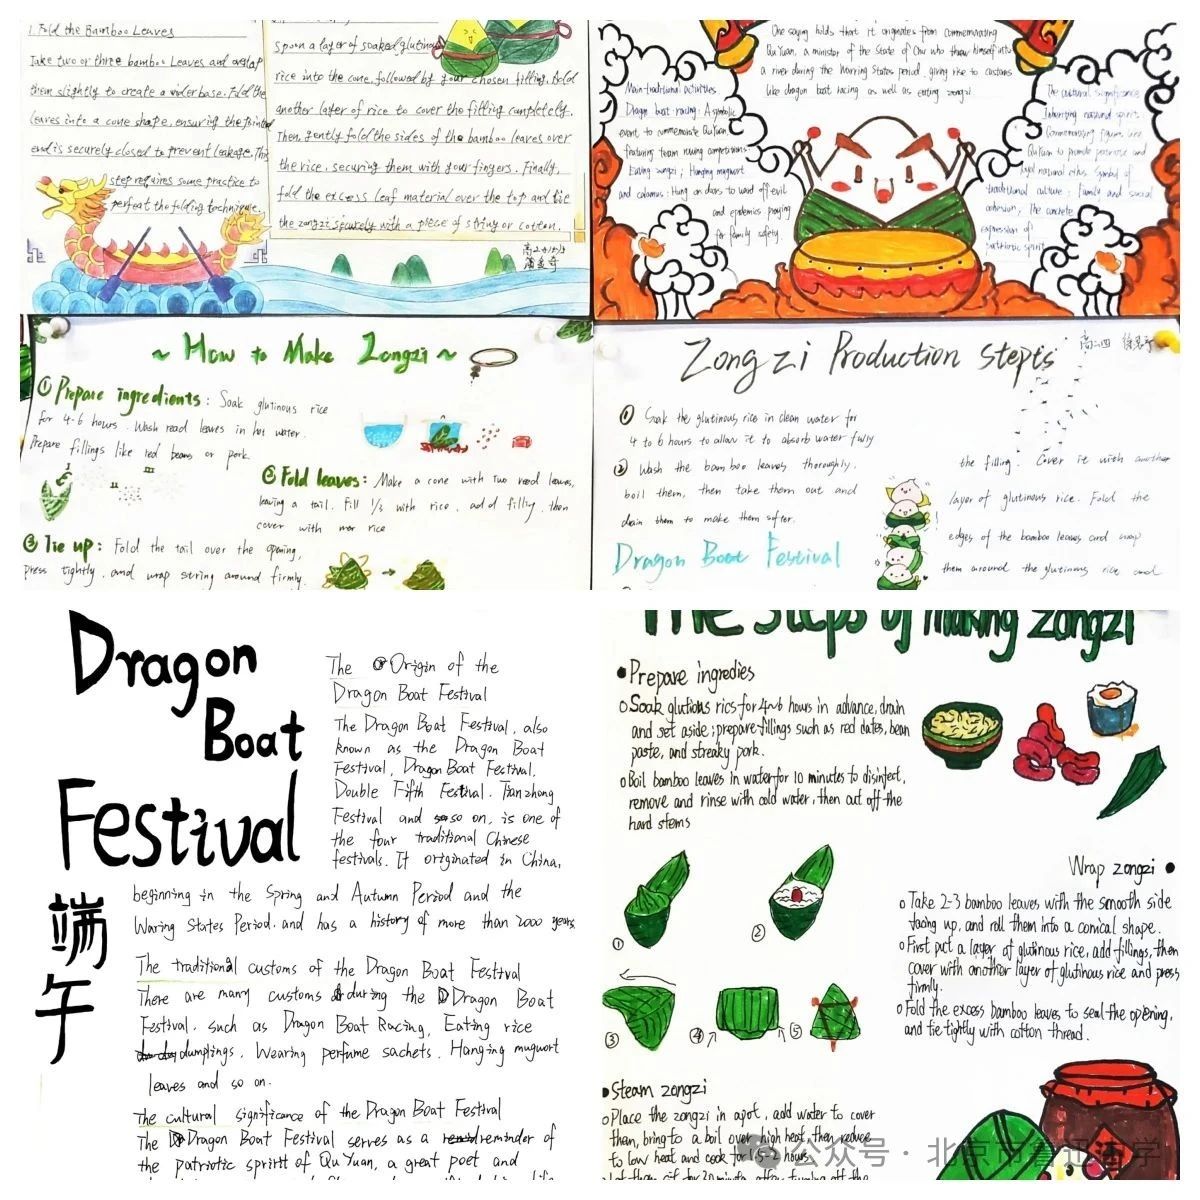 1. Fold the Bamboo Leaves
Take two or three bamboo Leaves and overlap
them slightly to create a wider base. Fold the
leaves into a cone shape, ensuring the pointed
end is securely closed to prevent leakage. This
step requires some practice to
perfeat the folding technique.
spoon a layer of soaked glutinous
rice into the cone, followed by your chosen filling. Add
another layer of rice to cover the filling completely.
Then, gently fold the sides of the bamboo leaves over
the rice, securing them with your fingers. Finally,
fold the excess leaf material over the top and tie
the zongzi securely with a piece of string or cotton.
One saying holds that it originates from commemorating
Qu Yuan, a minister of the State of Chu who threw himself into
a river during the Warring States period, giving rise to customs
like dragon boat racing as well as eating zongzi
Main traditional activities
Dragon boat racing: A symbolic
event to commemorate Qu Yuan,
featuring team rowing competitions
Eating zongzi; Hanging mugwort
and calamus: Hung on doors to ward off evil
and epidemics praying
for family safety.
The cultural significance
Inheriting national spirit
Commemorating figures like
Qu Yuan to promote patriotic and
loyal national ethos. Symbol of
traditional culture: family and social
cohesion; The concrete
expression of
patriotic spirit
~ How to Make Zongzi ~
① Prepare ingredients: Soak glutinous rice
for 4-6 hours. Wash read leaves in hot water.
Prepare fillings like red beans or pork.
② Fold leaves: Make a cone with two reed leaves,
leaving a tail. Fill 1/3 with rice, add filling, then
cover with mor rice
③ Tie up: Fold the tail over the opening,
press tightly, and wrap string around firmly.
Zongzi Production stepts
① Soak the glutinous rice in clean water for
4 to 6 hours to allow it to absorb water fully
② Wash the bamboo leaves thoroughly,
boil them, then take them out and
drain them to make them softer.
Dragon Boat Festival
the filling. Cover it with another
layer of glutinous rice. Fold the
edges of the bamboo leaves and wrap
them around the glutinous rice and
Dragon
Boat
Festival
端
午
The Origin of the
Dragon Boat Festival
The Dragon Boat Festival, also
known as the Dragon Boat
Festival, Dragon Boat Festival,
Double Fifth Festival. Tianzhong
Festival and so on, is one of
the four traditional Chinese
festivals. It originated in China,
beginning in the Spring and Autumn Period and the
Waring States Period. and has a history of more than 2000 years
The traditional customs of the Dragon Boat Festival
There are many customs during the Dragon Boat
Festival. such as Dragon Boat Racing, Eating rice
dumplings. Wearing perfume sachets. Hanging mugwort
leaves and so on.
The cultural significance of the Dragon Boat Festival
The Dragon Boat Festival serves as a reminder of
the patriotic spirit of Qu Yuan, a great poet and
The Steps of making Zongzi
•Prepare ingredies
Soak glutious rics for 4~6 hours in advance, drain
and set aside; prepare fillings such as red dates, bean
paste, and streaky pork.
Boil bamboo leaves in water for 10 minutes to disinfect,
remove and rinse with cold water, then cut off the
hard stems
①
②
③
④
⑤
Wrap zongzi •
Take 2-3 bamboo leaves with the smooth side
facing up, and roll them into a conical shape.
First put a layer of glutinous rice, add fillings, then
cover with another layer of glutinous rice and press
firmly.
Fold the excess bamboo leaves to seal the opening,
and tie tightly with cotton thread.
•Steam zongzi
Place the zongzi in a pot, add water to cover
them, bring to a boil over high heat, then reduce
to low heat and cook for hours.
公众号 · 北京市鲁迅中学